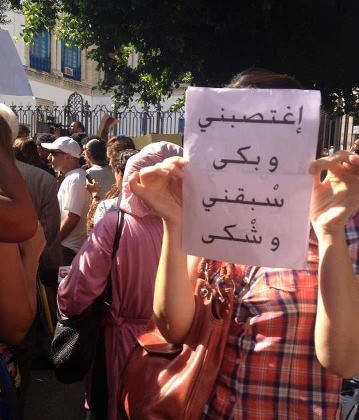 إغتصبني
و بكى
سْبقني
و شْكى